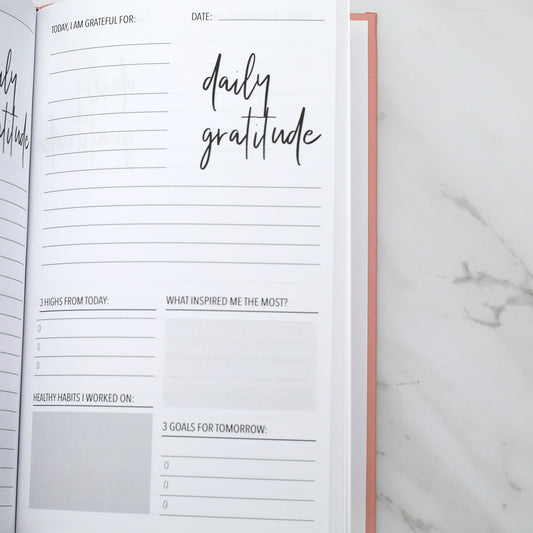 TODAY, I AM GRATEFUL FOR:
DATE:
daily
gratitude
3 HIGHS FROM TODAY:
WHAT INSPIRED ME THE MOST?
HEALTHY HABITS I WORKED ON:
3 GOALS FOR TOMORROW: